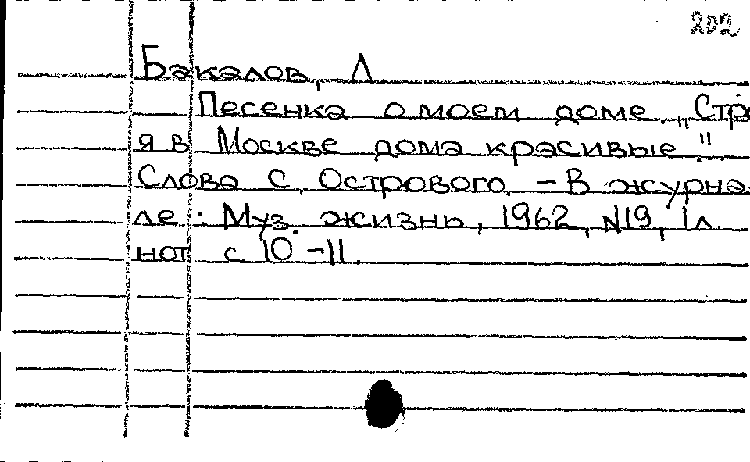 202
Бакалов, Л
Песенка о моем доме. „Стро
я в Москве дома красивые"
Слова С. Острового. - В журна
ле: Муз. жизнь, 1962, №19, 1л.
нот с 10-11.